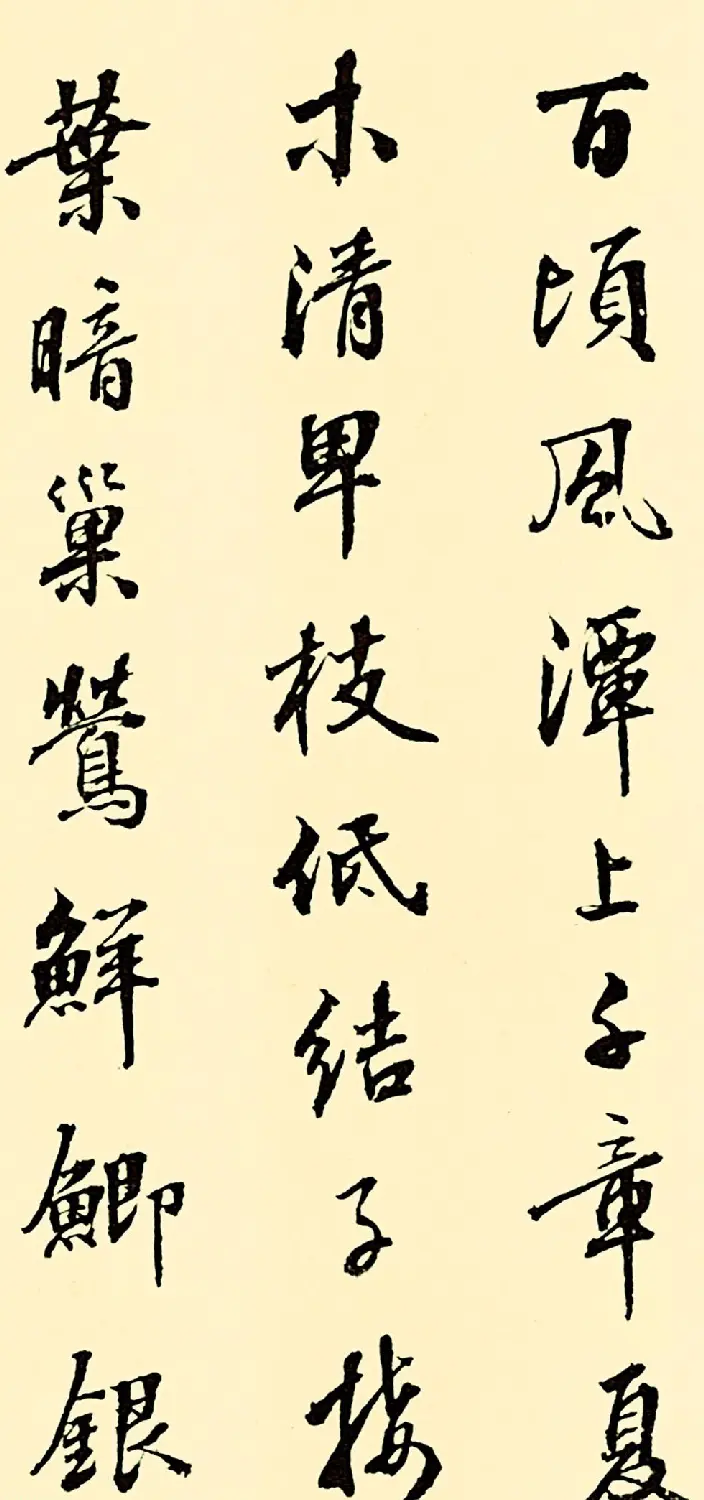 百頃風潭上千章夏
木清卑枝低結子接
葉暗巢鶯鮮鯽銀